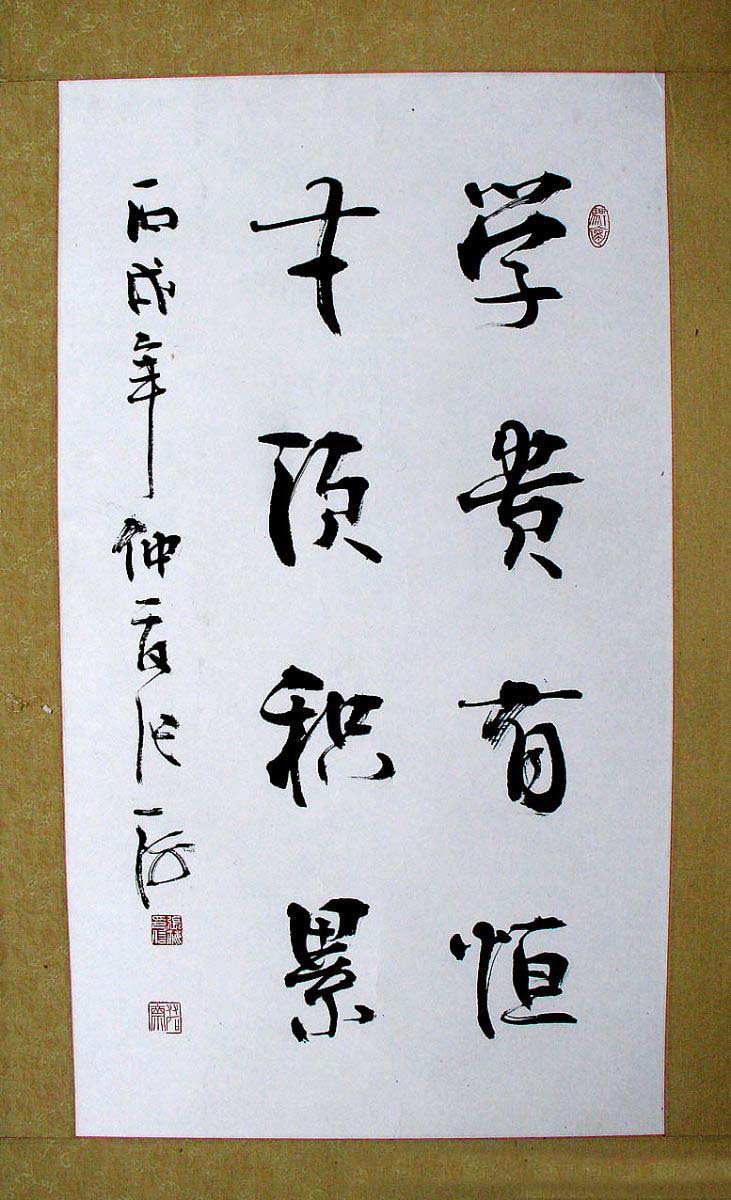 学贵有恒
才须积累
丙戌年仲夏张一